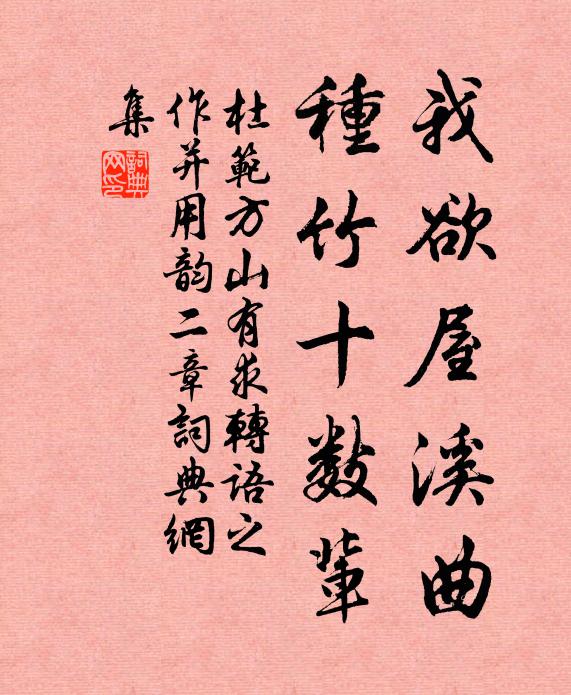 我欲屋溪曲
種竹十數輩
杜範方山有求轉語之
作并用韵二章詞典網
集
詞典網印